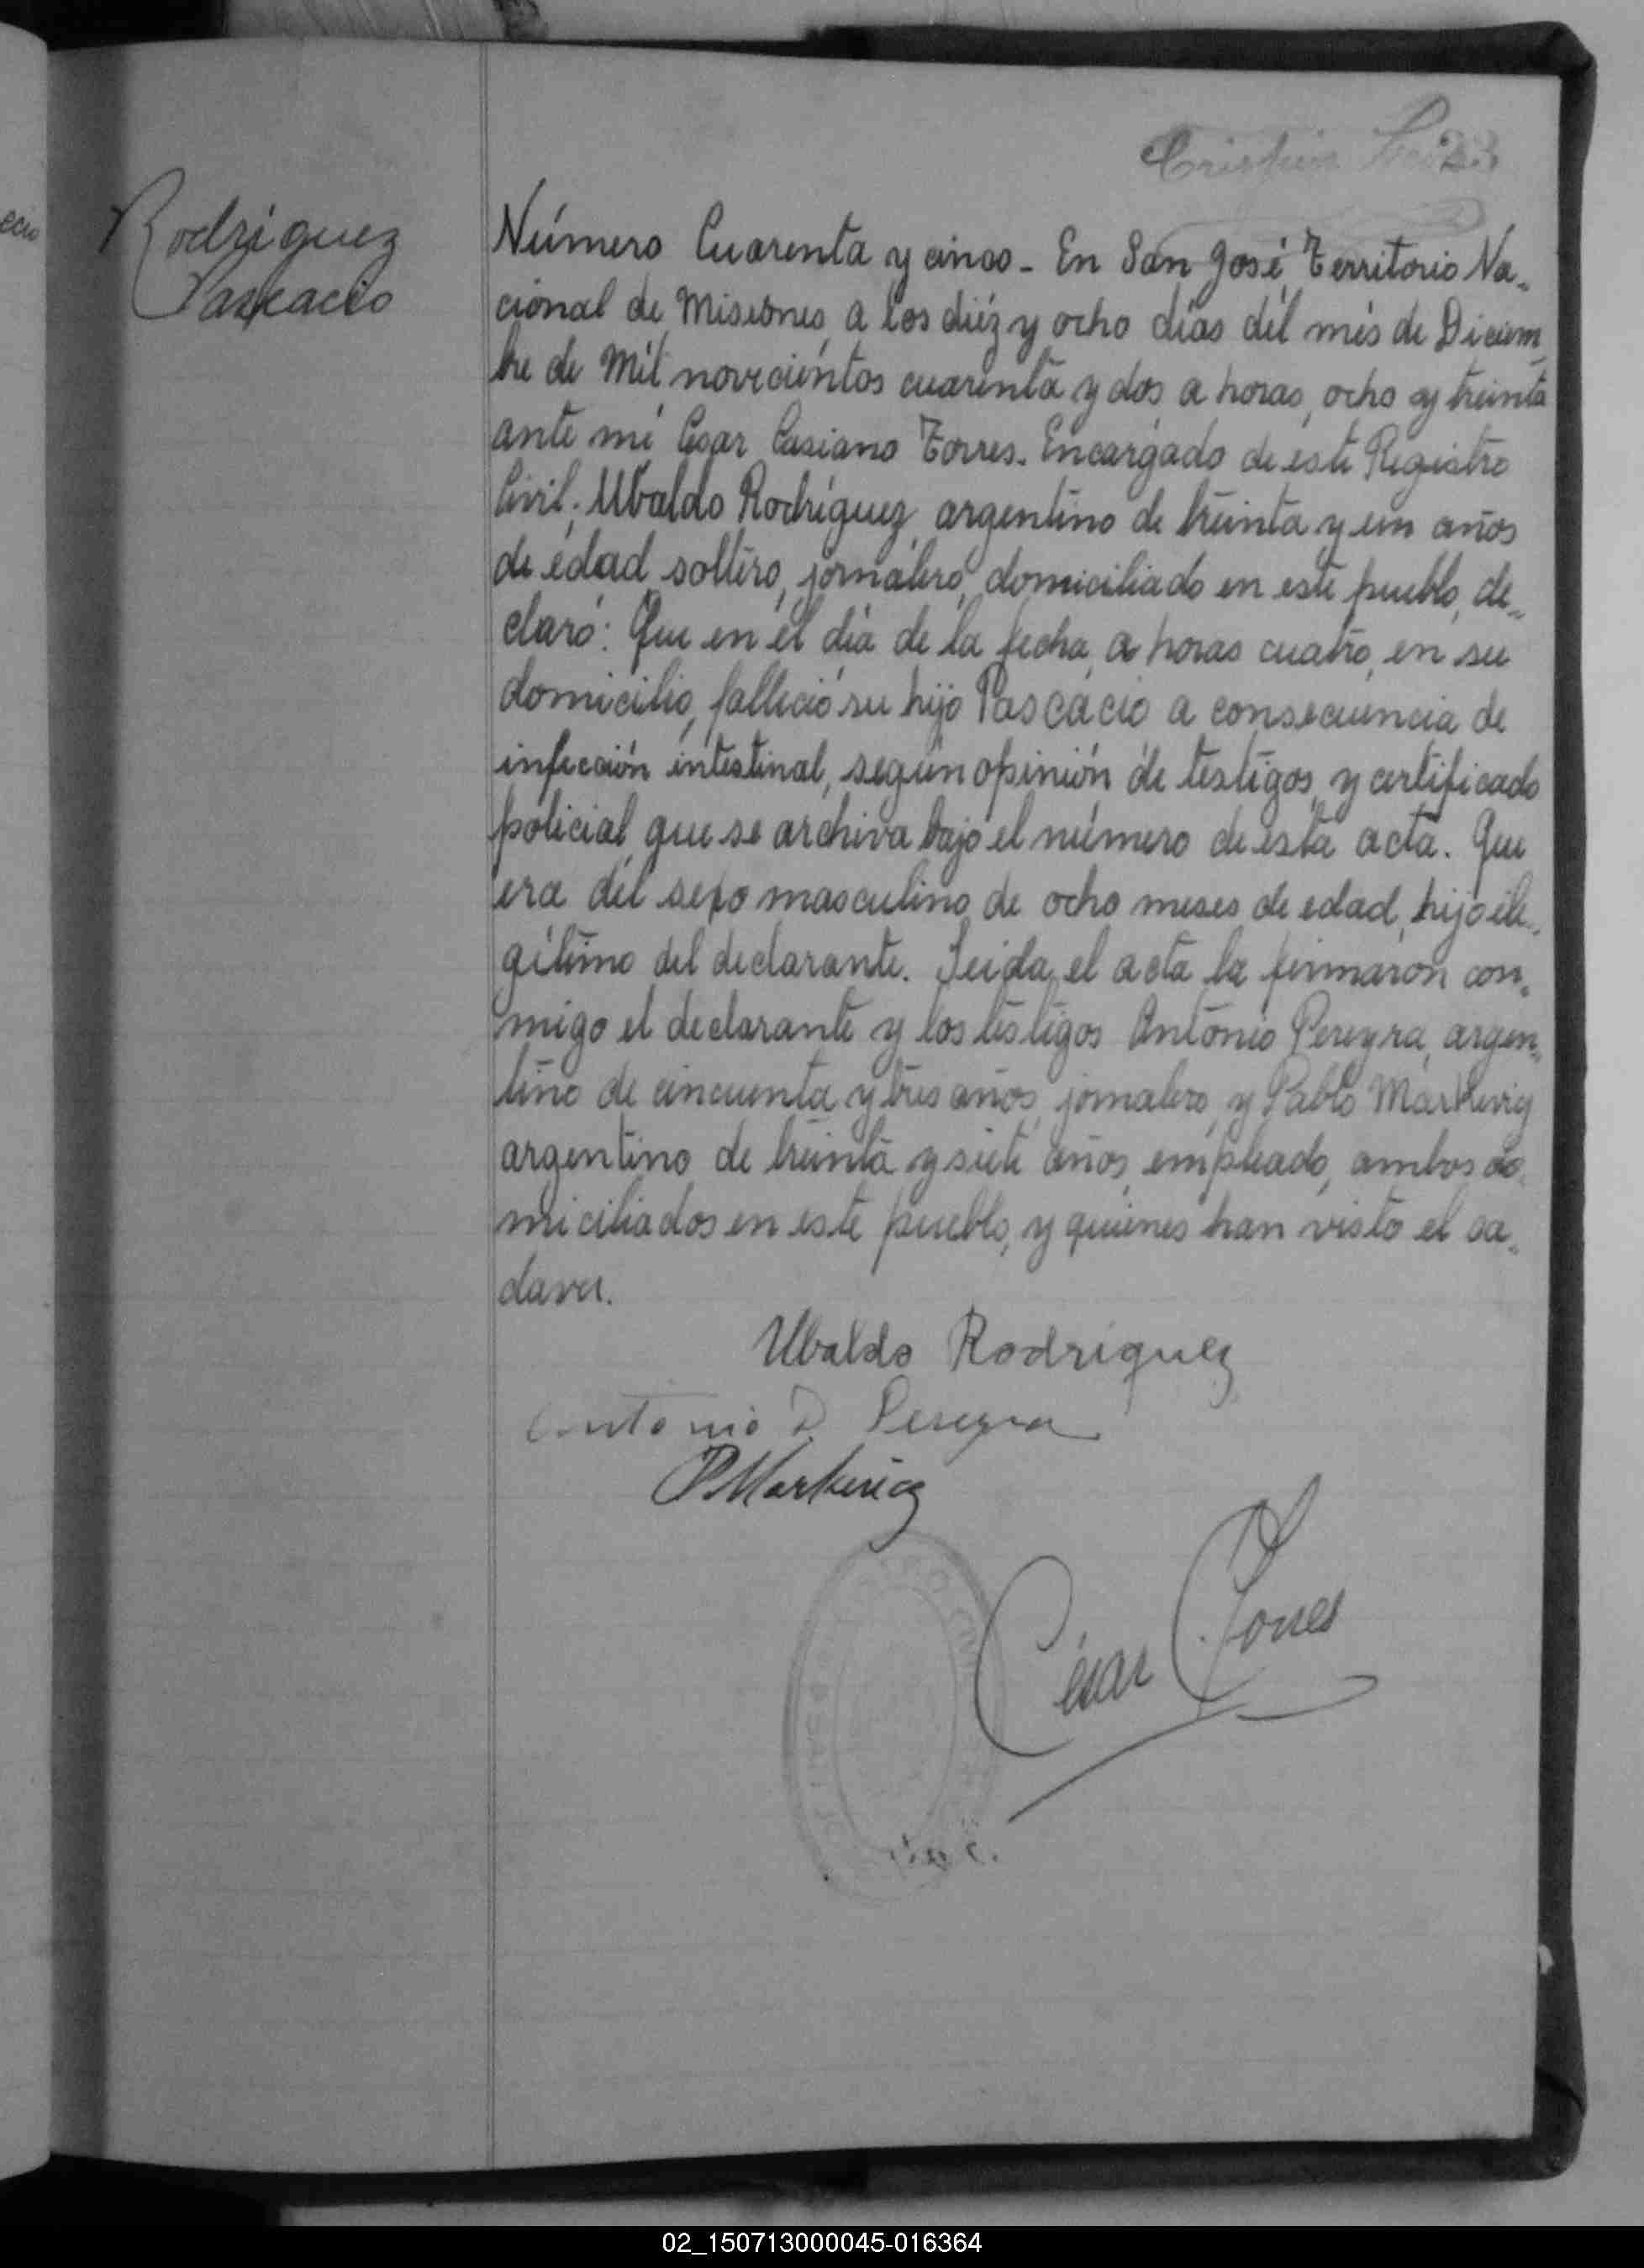 Cristian
Rodríguez
Pascacio
Número Cuarenta y cinco - En San José, Territorio Na-
cional de Misiones, a los diéz y ocho días dél més de Diciem-
bre de Mil novecientos cuarenta y dos a horas, ocho y treinta
ante mi César Casiano Torres. Encargado de este Registro
Civil; Ubaldo Rodríguez, argentino de treinta y un años
de edad soltero, jornalero, domiciliado en este pueblo, de-
claró: Que en el día de la fecha, a horas cuatro, en su
domicilio, falleció su hijo Pascacio a consecuencia de
infección intestinal, según opinión de testigos, y certificado
policial, que se archiva bajo el número de esta acta. Que
era del sexo masculino, de ocho meses de edad, hijo ile-
gítimo del declarante. Leida, el acta la firmaron con-
migo el declarante y los testigos Antonio Pereyra, argen-
tino de cincuenta y tres años, jornalero, y Pablo Markevig
argentino, de treinta y siete años, empleado, ambos do-
miciliados en este pueblo, y quienes han visto el ca-
daver.
Ubaldo Rodríguez
Antonio D. Pereyra
P Markevicz
César Torres
02_150713000045-016364